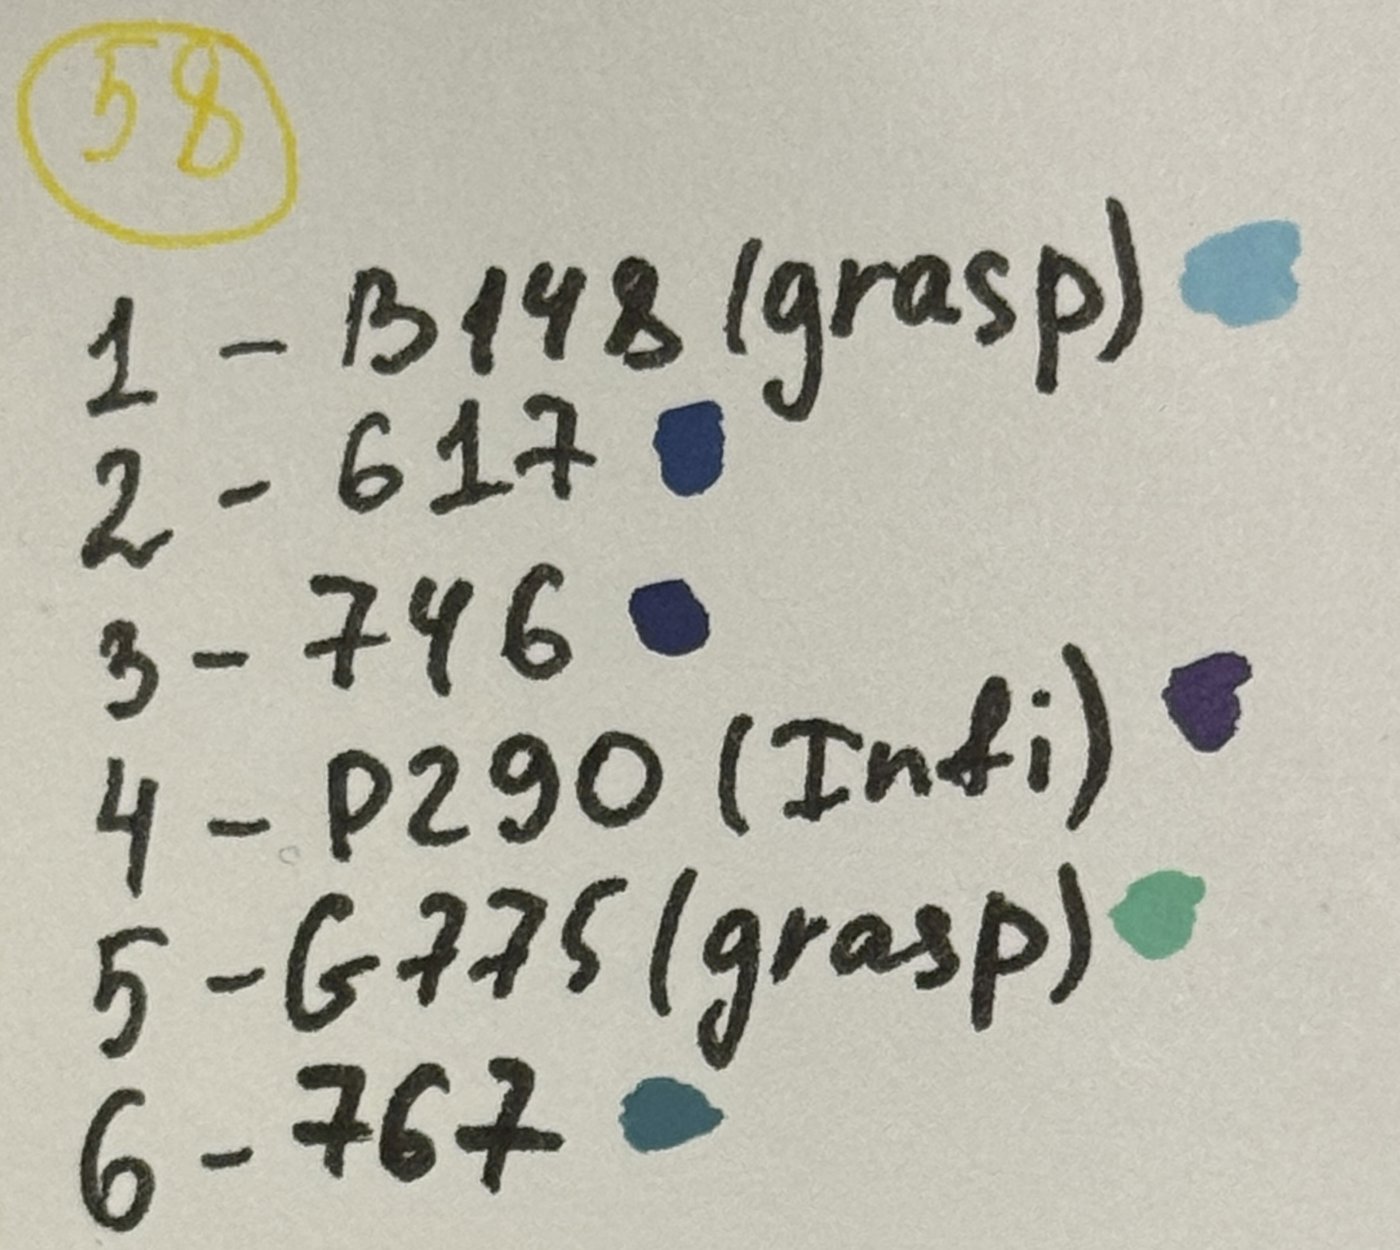 58
1 - B148 (grasp)
2 - 617
3 - 746
4 - P290 (Infi)
5 - G775 (grasp)
6 - 767